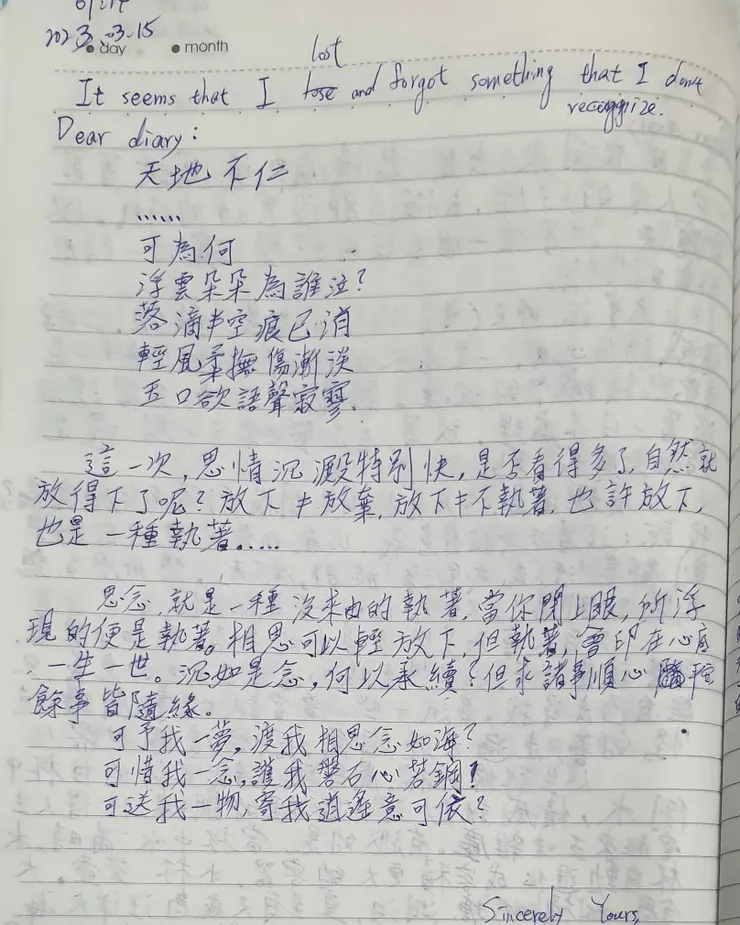 2023.03.15
day month
lost
It seems that I lose and forgot something that I don't
recoggnize.
Dear diary:
天地不仁
......
可為何
浮雲朵朵為誰泣?
落滴半空痕已消
輕風柔撫傷漸淡
五口欲語聲寂寥.
這一次,思情沉澱特別快,是否看得多了,自然就
放得下了呢?放下≠放棄,放下≠不執著,也許放下,
也是一種執著.....
思念,就是一種沒來由的執著,當你閉上眼,所浮
現的便是執著。相思可以輕放下,但執著,會印在心底
,一生一世。沉如是念,何以承續?但求諸事順心
餘事皆隨緣。
可予我一夢,渡我相思念如海?
可惜我一念,護我磐石心若鋼!
可送我一物,寄我逍遙意可依?
Sincerely Yours,